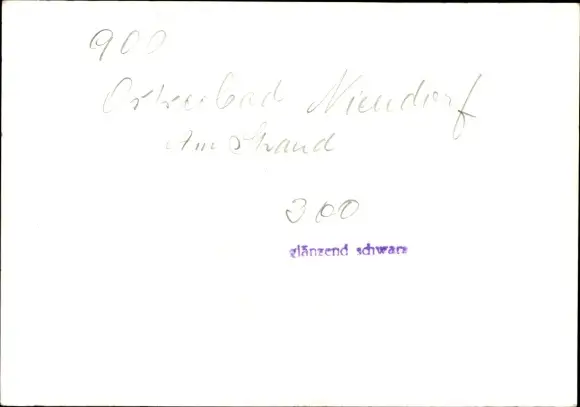 900
Ostseebad Niendorf
Am Strand
300
glänzend schwarz